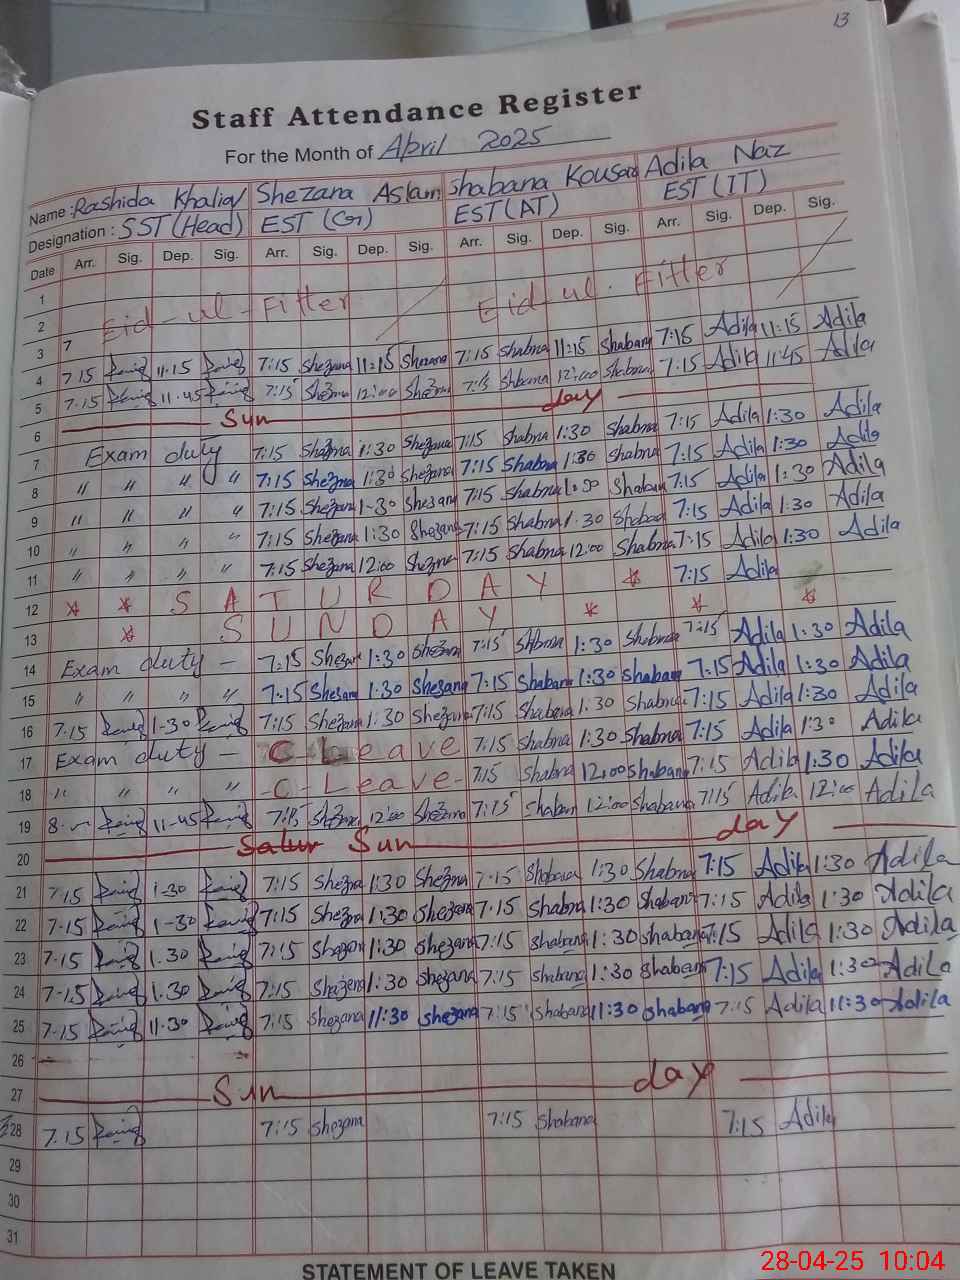 13
Staff Attendance Register
For the Month of April 2025
Name : Rashida Khaliq Shezana Aslam Shabana Kousar Adila Naz
Designation : SST (Head) EST (G) EST (AT) EST (TT)
Date Arr. Sig. Dep. Sig. Arr. Sig. Dep. Sig. Arr. Sig. Dep. Sig. Arr. Sig. Dep. Sig.
1
2 Eid-ul-Fitter Eid-ul-Fitter
3 7
4 7.15 11.15 7:15 Shezana 11:15 Shezana 7:15 Shabna 11:15 Shabana 7:15 Adila 11:15 Adila
5 7.15 11.45 7:15 Shezana 12:00 Shezana 7:15 Shabana 12:00 Shabana 7:15 Adila 11:45 Adila
6 Sun day
7 Exam duty 7:15 Shezana 1:30 Shezana 7:15 Shabna 1:30 Shabna 7:15 Adila 1:30 Adila
8 " " " " 7:15 Shezna 1:30 Shezana 7:15 Shabna 1:30 Shabna 7:15 Adila 1:30 Adila
9 " " " " 7:15 Shezana 1-30 Shezana 7:15 Shabna 1:30 Shabana 7:15 Adila 1:30 Adila
10 " " " " 7:15 Shezana 1:30 Shezana 7:15 Shabna 1.30 7:15 Adila 1:30 Adila
11 " " " " 7:15 Shezana 12:00 Shezna 7:15 Shabna 12:00 Shabna 7:15 Adila 1:30 Adila
12 * * S A T U R D A Y * 7:15 Adila
13 * S U N D A Y * * *
14 Exam duty - 7:15 Shezana 1:30 Shezana 7:15 Shbna 1:30 Shabna 7:15 Adila 1:30 Adila
15 " " " " 7:15 Shezana 1:30 Shezana 7:15 Shabana 1:30 Shabana 7:15 Adila 1:30 Adila
16 7.15 1-30 7:15 Shezana 1:30 Shezana 7:15 Shabana 1:30 Shabna 7:15 Adila 1:30 Adila
17 Exam duty C-Leave 7:15 Shabna 1:30 Shabna 7:15 Adila 1:30 Adila
18 " " " " -C-Leave- 7:15 Shabna 12:00 Shabana 7:15 Adila 1:30 Adila
19 11-45 7:15 Shezna 12:00 Shezana 7:15 Shaban 12:00 Shabana 7:15 Adila 12:00 Adila
20 Satur Sun day
21 7.15 1-30 7:15 Shezna 1:30 Shezna 7:15 Shabana 1:30 Shabna 7:15 Adila 1:30 Adila
22 7.15 1-30 7:15 Shezna 1:30 Shezana 7:15 Shabna 1:30 Shabana 7:15 Adila 1:30 Adila
23 7.15 1.30 7:15 Shezana 1:30 Shezana 7:15 Shabana 1:30 Shabana 7:15 Adila 1:30 Adila
24 7-15 1.30 7:15 Shezana 1:30 Shezana 7:15 Shabana 1:30 Shabana 7:15 Adila 1:30 Adila
25 7-15 11.30 7:15 Shezana 11:30 Shezana 7:15 Shabana 11:30 Shabana 7:15 Adila 11:30 Adila
26
27 Sun day
28 7.15 7:15 Shezana 7:15 Shabana 7:15 Adila
29
30
31
STATEMENT OF LEAVE TAKEN
28-04-25 10:04